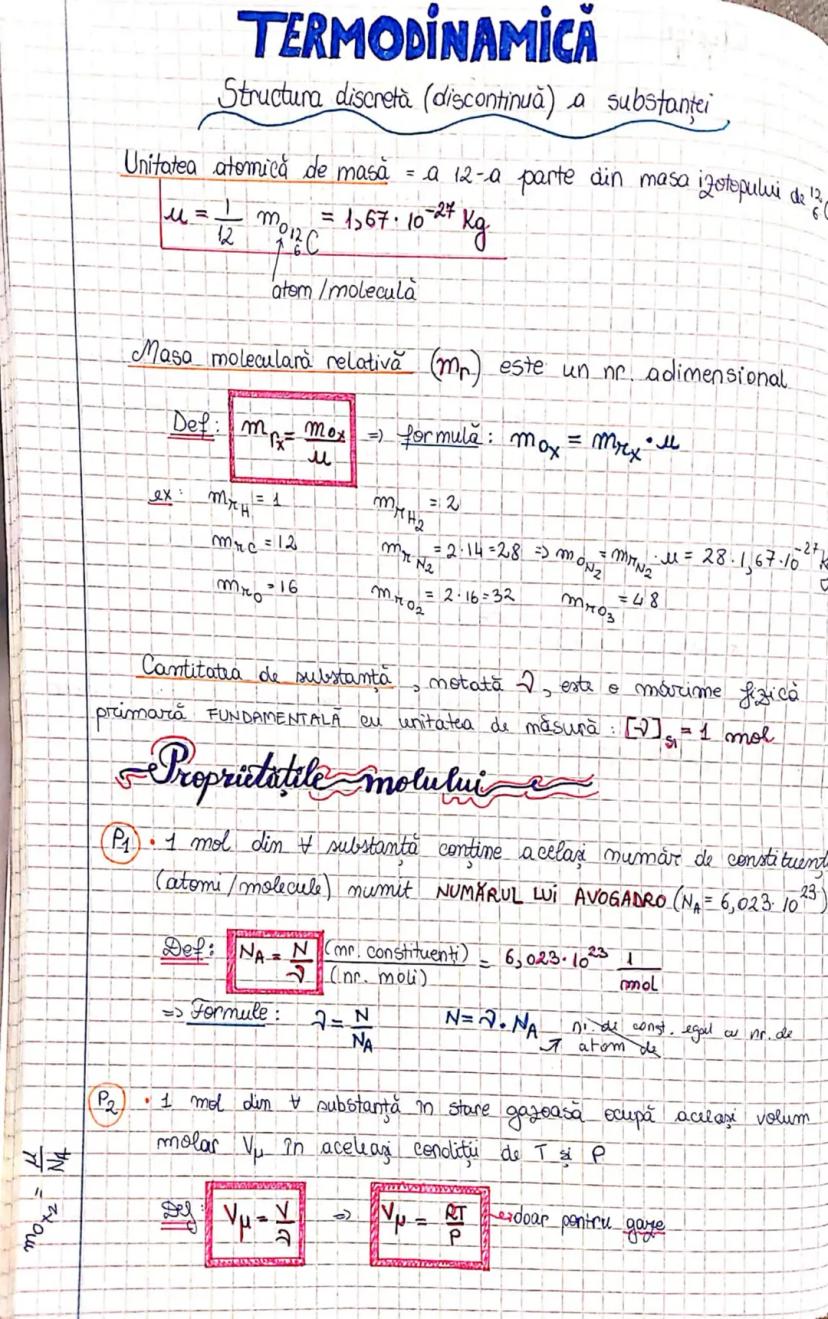 TERMODINAMICĂ
Structura discretă (discontinuă) a substanței
Unitatea atomică de masă = a 12-a parte din masa izotopului de ¹²₆C
u = 1/12 m₀ ¹²₆C = 1,67 · 10⁻²⁷ Kg
atom / moleculă
Masa moleculară relativă (mᵣ) este un nr. adimensional
Def: m_rx = m_0x / u => formulă: m_0x = m_rx · u
ex: m_rH = 1 m_rH₂ = 2
m_rC = 12 m_rN₂ = 2·14=28 => m_0N₂ = m_rN₂ · u = 28 · 1,67·10⁻²⁷ k
m_rO = 16 m_rO₂ = 2·16=32 m_rO₃ = 48
Cantitatea de substanță, notată ν, este o mărime fizică
primară FUNDAMENTALĂ cu unitatea de măsură: [ν]_SI = 1 mol
Proprietățile molului
P1 • 1 mol din ∀ substanță conține același număr de constituenț
(atomi/molecule) numit NUMĂRUL LUI AVOGADRO (N_A = 6,023·10²³)
Def: N_A = N/ν (nr. constituenți)/(nr. moli) = 6,023·10²³ 1/mol
=> Formule: ν = N/N_A N = ν · N_A nr. de const. egal cu nr. de
atom de
P2 • 1 mol din ∀ substanță în stare gazoasă ocupă același volum
molar V_μ în aceleași condiții de T și P
Def: V_μ = V/ν => V_μ = RT/P doar pentru gaze
m_0x₂ = μ/N_A